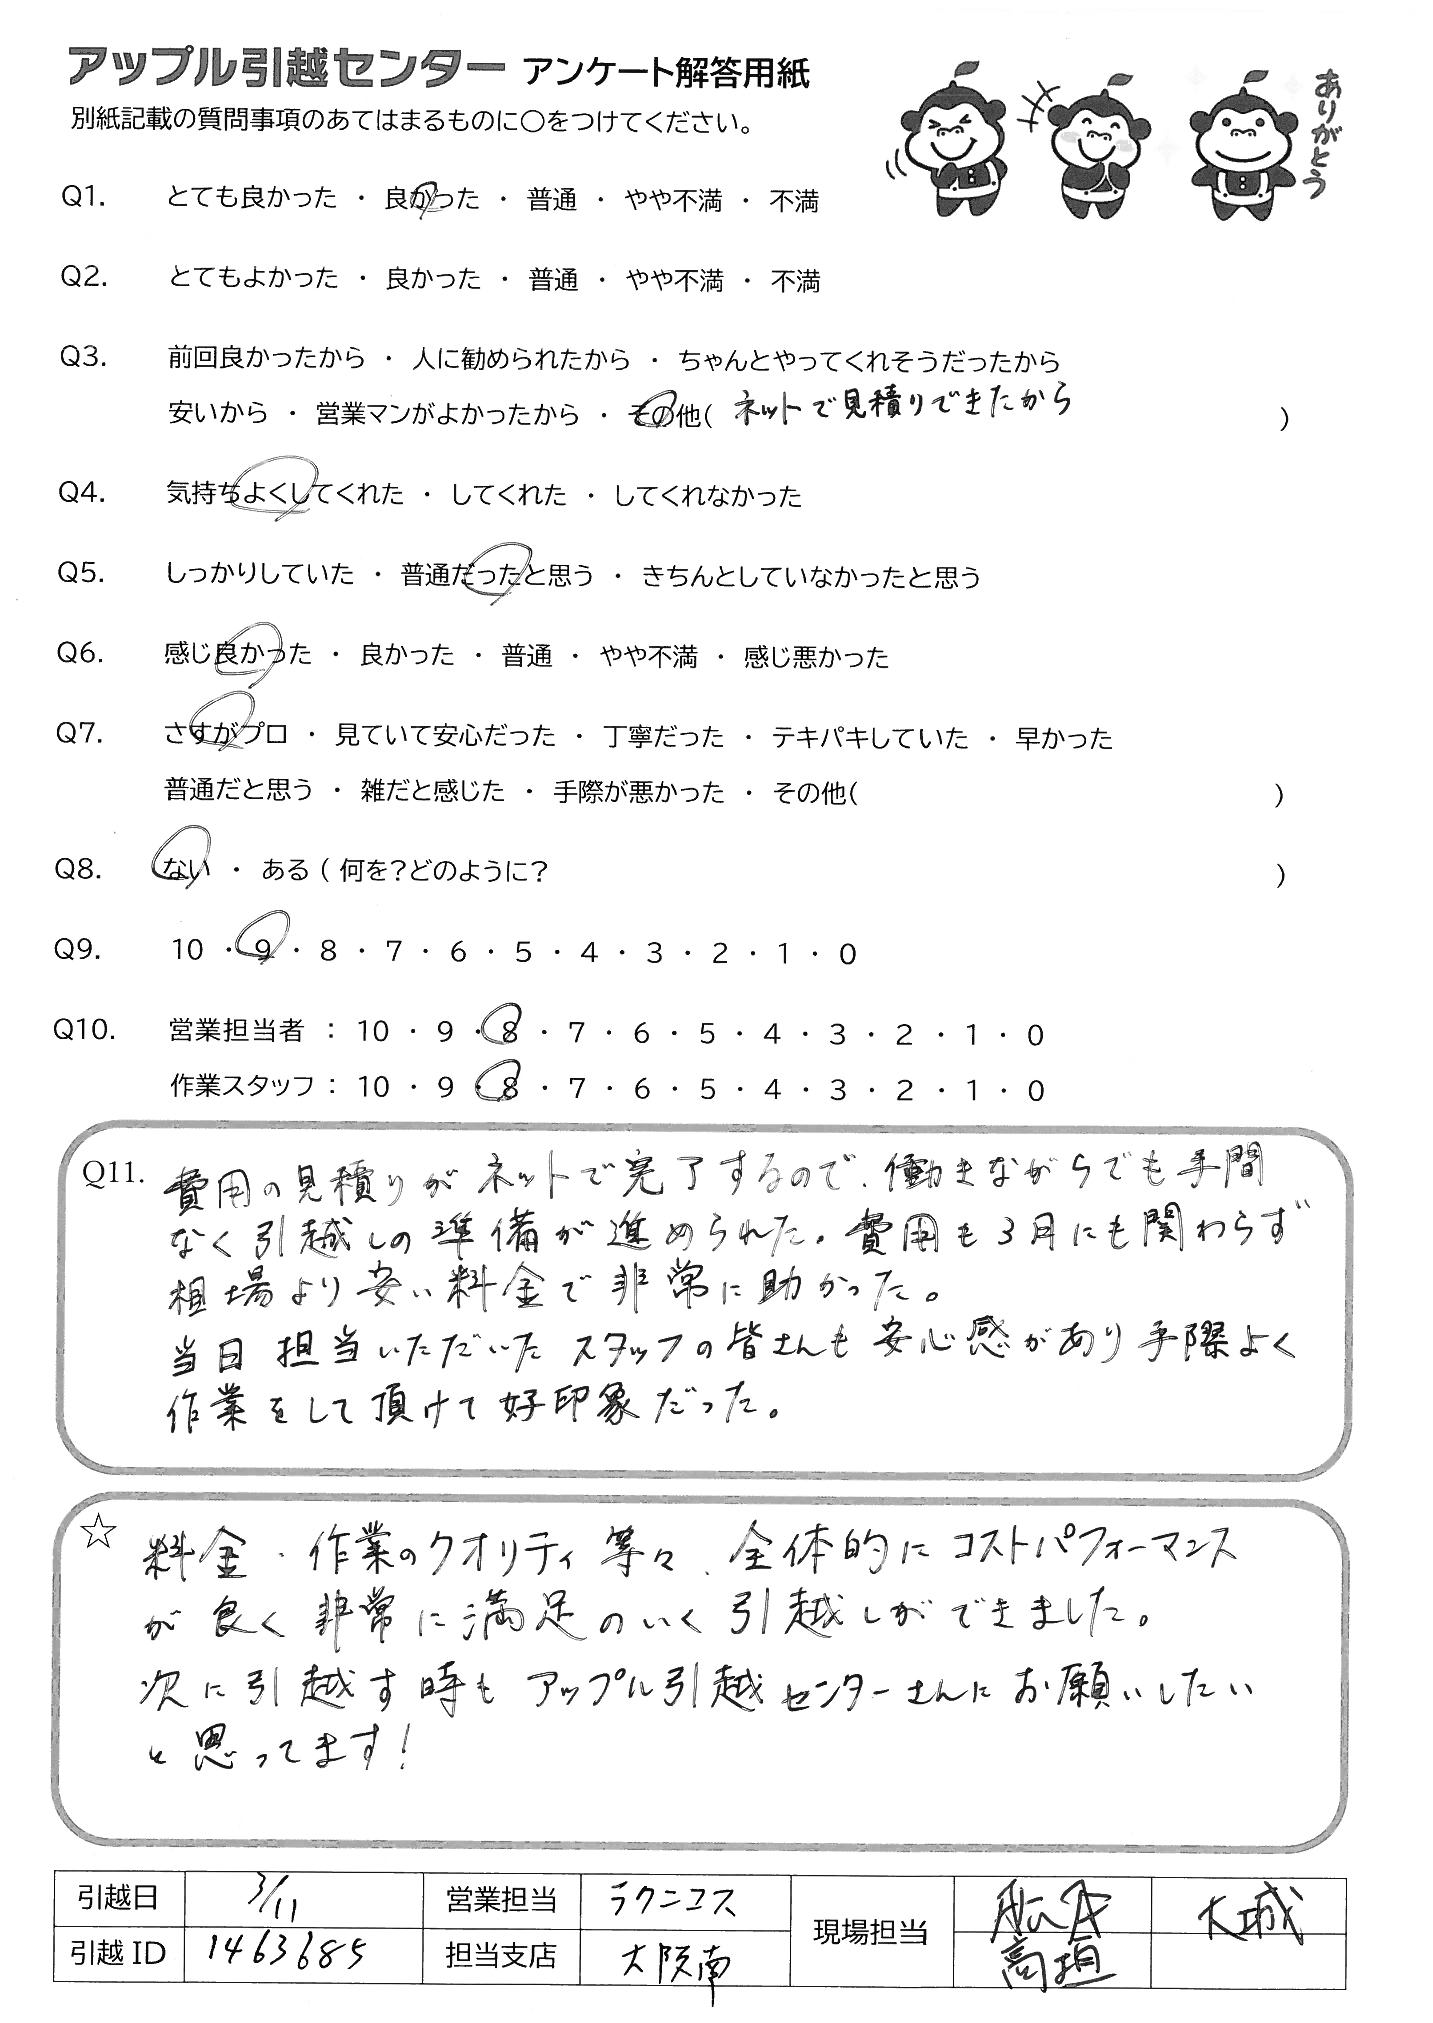 アップル引越センター アンケート解答用紙
別紙記載の質問事項のあてはまるものに〇をつけてください。
ありがとう
Q1. とても良かった ・ 良かった ・ 普通 ・ やや不満 ・ 不満
Q2. とてもよかった ・ 良かった ・ 普通 ・ やや不満 ・ 不満
Q3. 前回良かったから ・ 人に勧められたから ・ ちゃんとやってくれそうだったから
安いから ・ 営業マンがよかったから ・ その他( ネットで見積りできたから )
Q4. 気持ちよくしてくれた ・ してくれた ・ してくれなかった
Q5. しっかりしていた ・ 普通だったと思う ・ きちんとしていなかったと思う
Q6. 感じ良かった ・ 良かった ・ 普通 ・ やや不満 ・ 感じ悪かった
Q7. さすがプロ ・ 見ていて安心だった ・ 丁寧だった ・ テキパキしていた ・ 早かった
普通だと思う ・ 雑だと感じた ・ 手際が悪かった ・ その他( )
Q8. ない ・ ある ( 何を?どのように? )
Q9. 10 ・ 9 ・ 8 ・ 7 ・ 6 ・ 5 ・ 4 ・ 3 ・ 2 ・ 1 ・ 0
Q10. 営業担当者 : 10 ・ 9 ・ 8 ・ 7 ・ 6 ・ 5 ・ 4 ・ 3 ・ 2 ・ 1 ・ 0
作業スタッフ : 10 ・ 9 ・ 8 ・ 7 ・ 6 ・ 5 ・ 4 ・ 3 ・ 2 ・ 1 ・ 0
Q11. 費用の見積りがネットで完了するので、働きながらでも手間
なく引越しの準備が進められた。費用も3月にも関わらず
相場より安い料金で非常に助かった。
当日担当いただいたスタッフの皆さんも安心感があり手際よく
作業をして頂けて好印象だった。
☆ 料金、作業のクオリティ等々、全体的にコストパフォーマンス
が良く非常に満足のいく引越しができました。
次に引越す時もアップル引越センターさんにお願いしたい
と思ってます!
引越日 3/11 営業担当 ラクニコス 現場担当 大城
引越ID 1463685 担当支店 大阪南 高垣